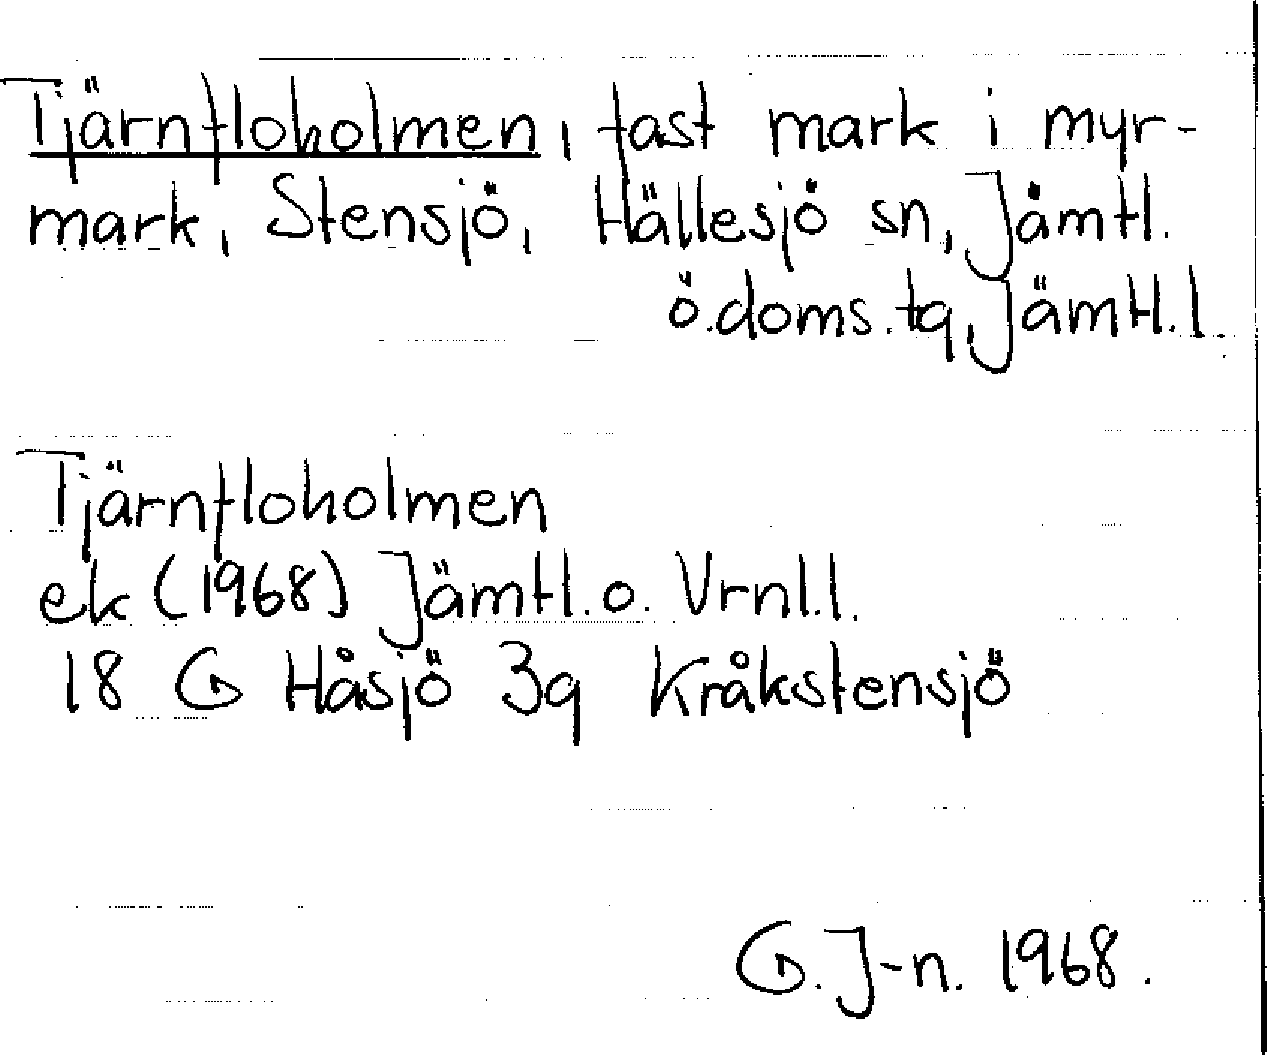 Tjärnfloholmen, fast mark i myr-
mark, Stensjö, Hällesjö sn, Jämtl.
ö.doms.tg, Jämtl.l.
Tjärnfloholmen
ek (1968) Jämtl.o. Vrnl.l.
18 G Håsjö 3g Kråkstensjö
G. J-n. 1968.